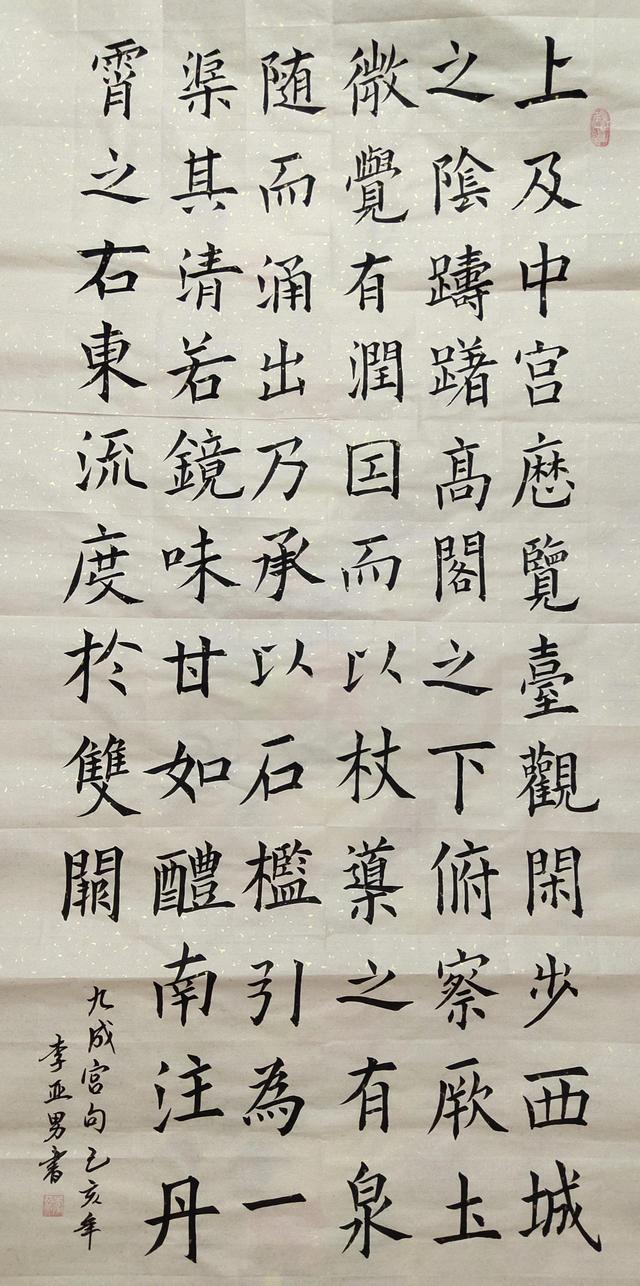 上及中宫歷覽臺觀閑步西城
之陰躊躇高閣之下俯察厥土
微覺有潤因而以杖導之有泉
随而涌出乃承以石檻引為一
渠其清若鏡味甘如醴南注丹
霄之右東流度於雙闕
九成宫句己亥年
李亚男書